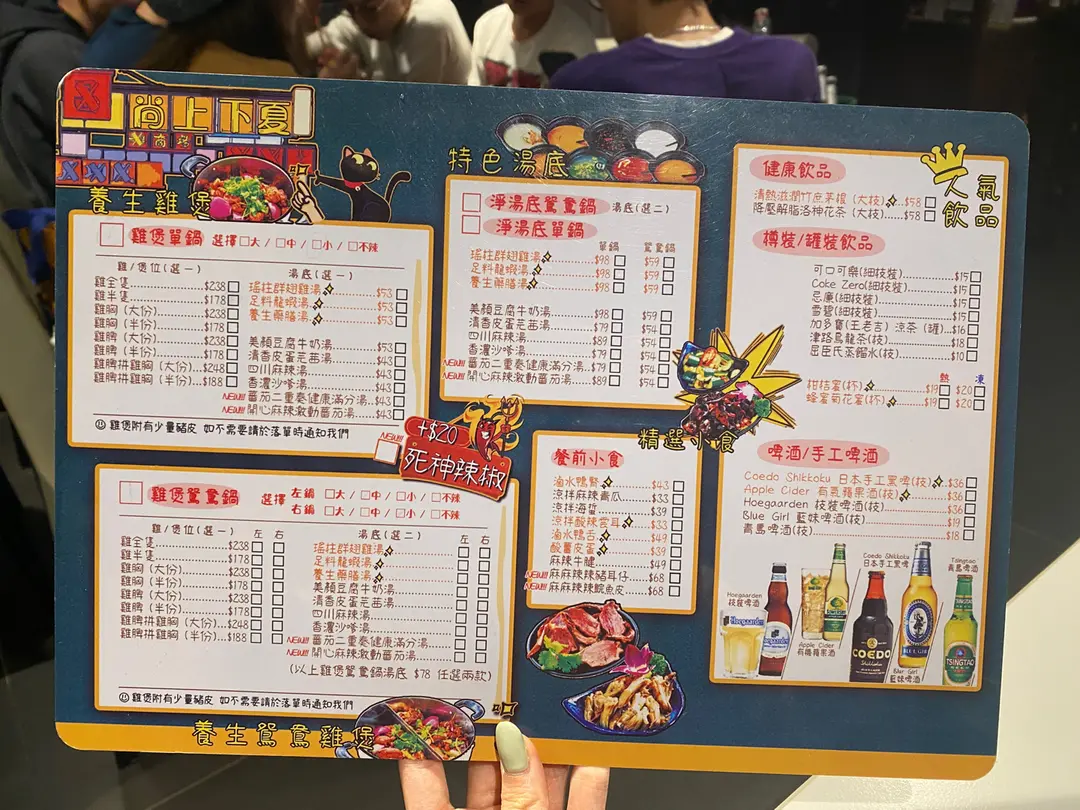 尚上下夏
養生雞煲
雞煲單鍋 選擇□大 / □中 / □小 / □不辣
雞/煲位(選一) 湯底(選一)
雞全隻 $238
雞半隻 $178
雞胸 (大份) $238
雞胸 (半份) $178
雞脾 (大份) $238
雞脾 (半份) $178
雞脾拼雞胸 (大份) $248
雞脾拼雞胸 (半份) $188
瑤柱群翅雞湯 $53
足料龍蝦湯 $53
養生藥膳湯 $53
美顏豆腐牛奶湯 $53
清香皮蛋芫茜湯 $43
四川麻辣湯 $43
香濃沙嗲湯 $43
NEW!!! 蕃茄二重奏健康滿分湯 $43
NEW!!! 開心麻辣激動蕃茄湯 $43
雞煲附有少量豬皮 如不需要請於落單時通知我們
NEW!!!
+$20
死神辣椒
雞煲鴛鴦鍋 選擇
左鍋 □大 / □中 / □小 / □不辣
右鍋 □大 / □中 / □小 / □不辣
雞/煲位(選一) 左 右
雞全隻 $238
雞半隻 $178
雞胸 (大份) $238
雞胸 (半份) $178
雞脾 (大份) $238
雞脾 (半份) $178
雞脾拼雞胸 (大份) $248
雞脾拼雞胸 (半份) $188
湯底(選二) 左 右
瑤柱群翅雞湯
足料龍蝦湯
養生藥膳湯
美顏豆腐牛奶湯
清香皮蛋芫茜湯
四川麻辣湯
香濃沙嗲湯
NEW!!! 蕃茄二重奏健康滿分湯
NEW!!! 開心麻辣激動蕃茄湯
(以上雞煲鴛鴦鍋湯底 $78 任選兩款)
雞煲附有少量豬皮 如不需要請於落單時通知我們
養生鴛鴦雞煲
特色湯底
淨湯底鴛鴦鍋 湯底(選二)
淨湯底單鍋
單鍋 鴛鴦鍋
瑤柱群翅雞湯 $98 $59
足料龍蝦湯 $98 $59
養生藥膳湯 $98 $59
美顏豆腐牛奶湯 $98 $59
清香皮蛋芫茜湯 $79 $54
四川麻辣湯 $89 $54
香濃沙嗲湯 $79 $54
NEW!!! 蕃茄二重奏健康滿分湯 $79 $54
NEW!!! 開心麻辣激動蕃茄湯 $89 $54
精選小食
餐前小食
滷水鴨腎 $43
涼拌麻辣青瓜 $33
涼拌海蜇 $39
涼拌酸辣雲耳 $33
滷水鴨舌 $49
酸薑皮蛋 $39
麻辣牛𦟌 $49
NEW!!! 麻麻辣辣豬耳仔 $68
NEW!!! 麻麻辣辣鯇魚皮 $68
人氣飲品
健康飲品
清熱滋潤竹蔗茅根 (大枝) $58
降壓解脂洛神花茶 (大枝) $58
樽裝/罐裝飲品
可口可樂(細枝裝) $15
Coke Zero(細枝裝) $15
忌廉(細枝裝) $15
雪碧(細枝裝) $15
加多寶(王老吉) 涼茶 (罐) $16
津路烏龍茶(枝) $18
屈臣氏蒸餾水(枝) $10
熱 凍
柑桔蜜(杯) $19 $20
蜂蜜菊花蜜(杯) $19 $20
啤酒/手工啤酒
Coedo Shikkoku 日本手工黑啤(枝) $36
Apple Cider 有氣蘋果酒(枝) $36
Hoegaarden 枝裝啤酒(枝) $36
Blue Girl 藍妹啤酒(枝) $19
青島啤酒(枝) $18
Hoegaarden
枝裝啤酒
Apple Cider
有機青果酒
Coedo Shikkoku
日本手工黑啤
Blue Girl
藍妹啤酒
Tsingtao
青島啤酒
Hoegaarden
COEDO
Shikkoku
TSINGTAO